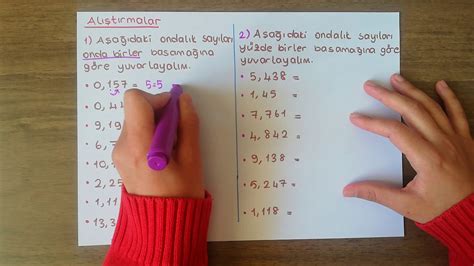 Alıştırmalar
1) Aşağıdaki ondalık sayıları
onda birler basamağına
göre yuvarlayalım.
• 0,157 = 5=5
• 0,4
• 9,19
• 6,
• 10,
• 2,25
• 1,11
• 13,3
2) Aşağıdaki ondalık sayıları
yüzde birler basamağına göre
yuvarlayalım.
• 5,438 =
• 1,45 =
• 7,761 =
• 4,842 =
• 9,138 =
• 5,247 =
• 1,118 =